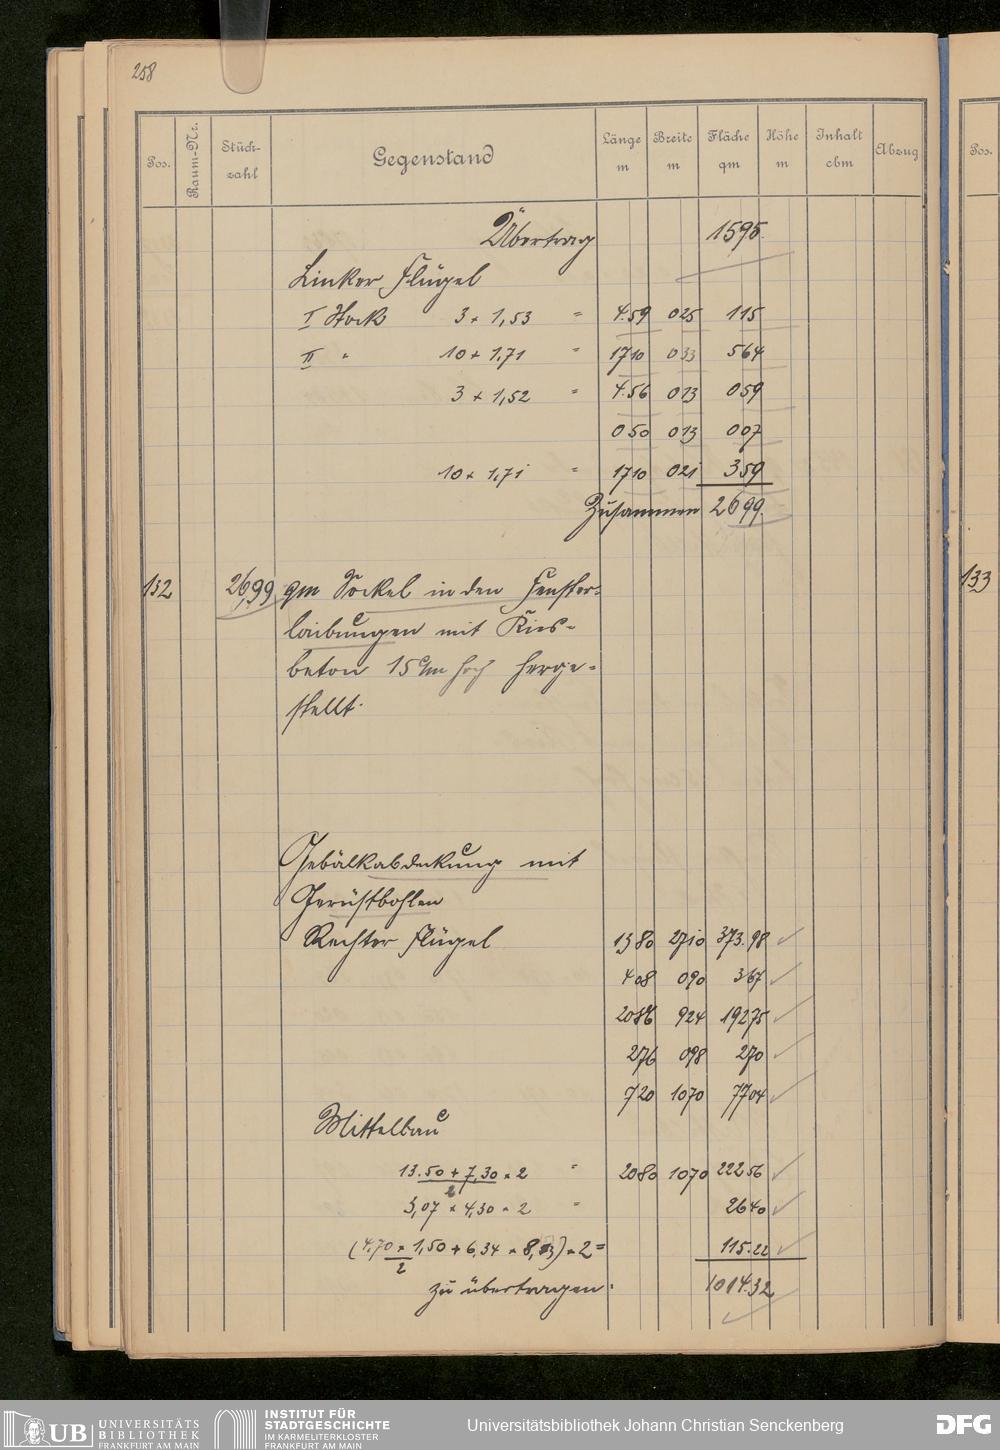 258
Pos. Raum-Nr. Stück-zahl Gegenstand Länge m Breite m Fläche qm Höhe m Inhalt cbm Abzug
Pos.
Übertrag 1595.
Linker Flügel
I Stock 3 × 1,53 = 4.59 025 115
II " 10 × 1.71 = 1710 033 564
3 × 1,52 = 4.56 013 059
050 013 007
10 × 1,71 = 1710 021 359
Zusammen 2699.
132 26,99 qm Sockel in den Fenster-
133
laibungen mit Kies-
beton 15 c/m hoch herge-
stellt.
Gebälkabdeckung mit
Gerüstbohlen
Rechter Flügel 1380 2710 373.98
408 090 367
2086 924 19275
276 098 270
720 1070 7704
Mittelbau
13.50 + 7,30 × 2 = 2080 1070 22256
2
3,07 × 4,30 × 2 = 2640
(4.70 × 1,50 + 6,34 × 8, ) × 2 = 115.22
2
zu übertragen: 1014.32
UB UNIVERSITÄTS
BIBLIOTHEK
FRANKFURT AM MAIN
INSTITUT FÜR
STADTGESCHICHTE
IM KARMELITERKLOSTER
FRANKFURT AM MAIN
Universitätsbibliothek Johann Christian Senckenberg
DFG